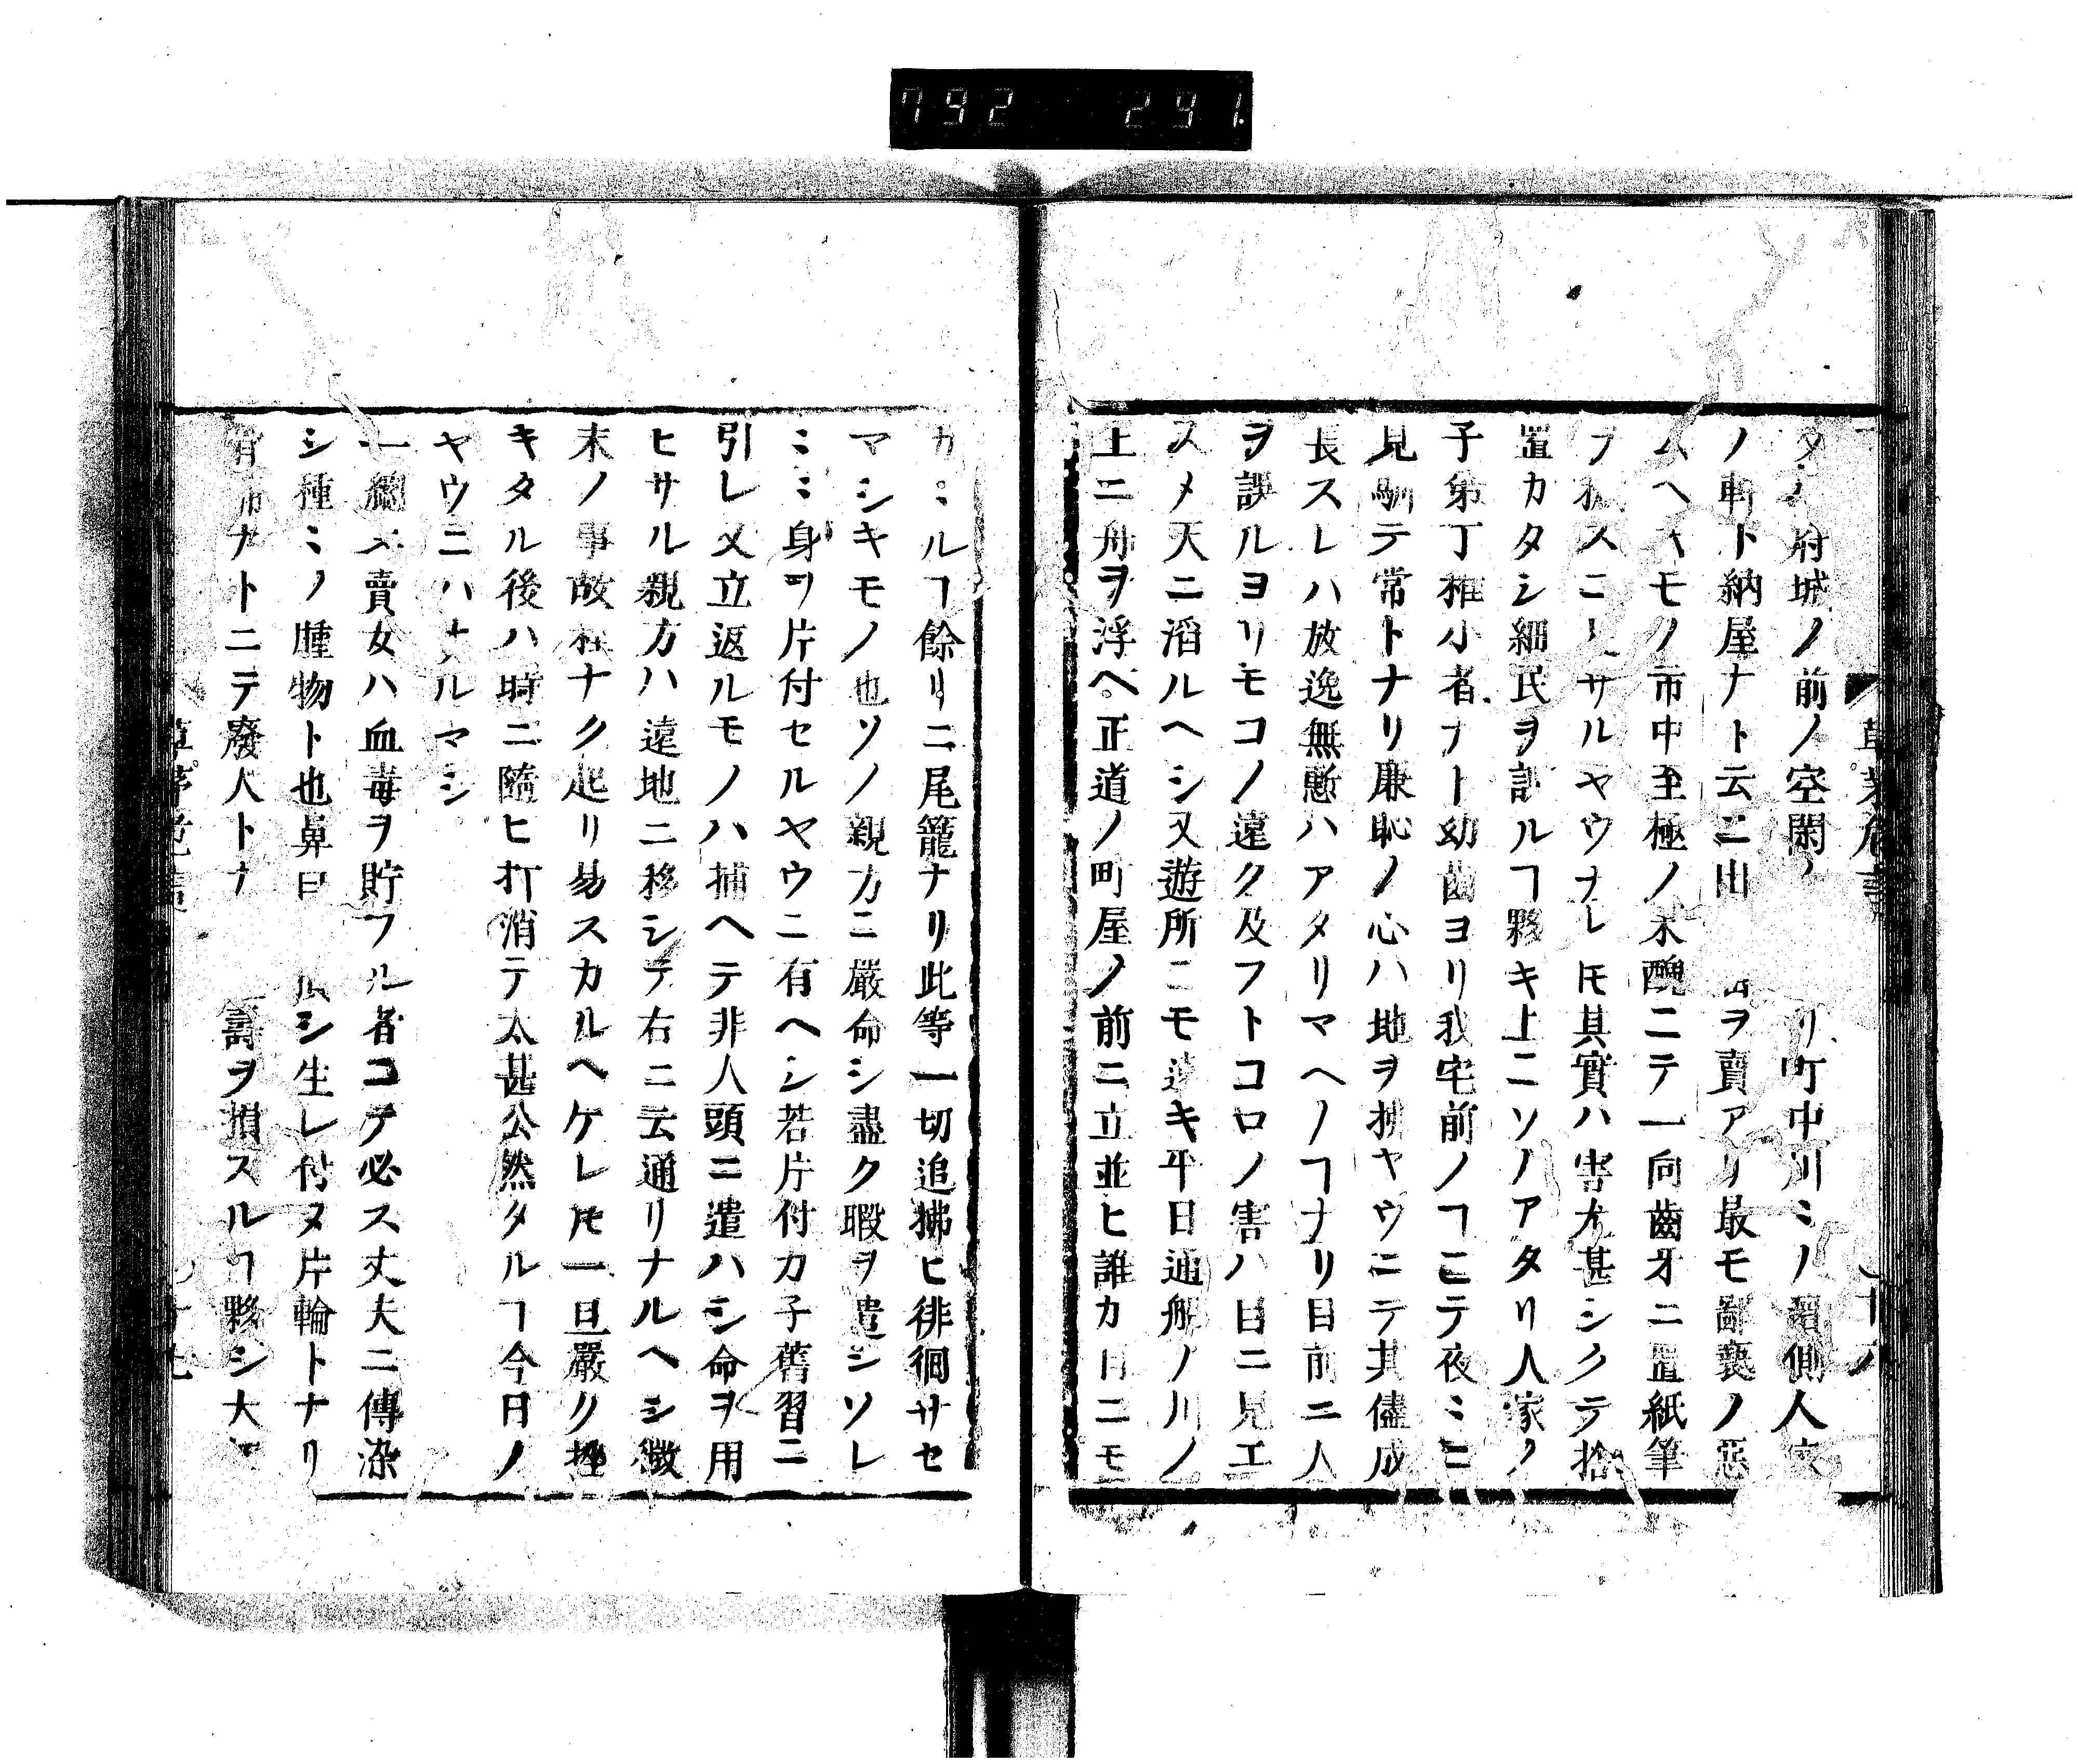 792 291
府城ノ前ノ空閑 リ町中川ミノ 側人家
ノ軒下納屋ナト云ニ出 ヲ賣アリ最モ鄙褻ノ惡
ムヘキモノ市中至極ノ不醜ニテ一向齒牙ニ置紙筆
スニ サルヤウナレ𪜈其實ハ害尤甚シクテ捨
置カタシ細民ヲ誤ルヿ夥キ上ニソノアタリ人家ノ
子弟丁稚小者ナト幼齒ヨリ我宅前ノヿニテ夜ミニ
見馴テ常トナリ廉恥ノ心ハ地ヲ拂ヤウニテ其儘成
長スレハ放逸無慙ハアタリマヘノヿナリ目前ニ人
ヲ誤ルヨリモコノ遠ク及フトコロノ害ハ目ニ見エ
スメ天ニ滔ルヘシ又遊所ニモ遠キ平日通船ノ川ノ
上ニ舟ヲ浮ヘ正道ノ町屋ノ前ニ立並ヒ誰カ目ニモ
カヽルヿ餘リニ尾籠ナリ此等一切追拂ヒ徘徊サセ
マシキモノ也ソノ親方ニ嚴命シ盡ク暇ヲ遣シソレ
ミミ身ヲ片付セルヤウニ有ヘシ若片付カ子舊習ニ
引レ又立返ルモノハ捕ヘテ非人頭ニ遣ハシ命ヲ用
ヒサル親方ハ遠地ニ移シテ右ニ云通リナルヘシ微
末ノ事故 ナク起リ易スカルヘケレ𪜈一旦嚴ク挫
キタル後ハ時ニ隨ヒ打消テ太甚公然タルヿ今日ノ
ヤウニハナルマシ
一總メ賣女ハ血毒ヲ貯フル者コテ必ス丈夫ニ傳染
シ種ミノ腫物ト也鼻 シ生レ付ヌ片輪トナリ
ナトニテ廢人トナ 壽ヲ損スルヿ夥シ大